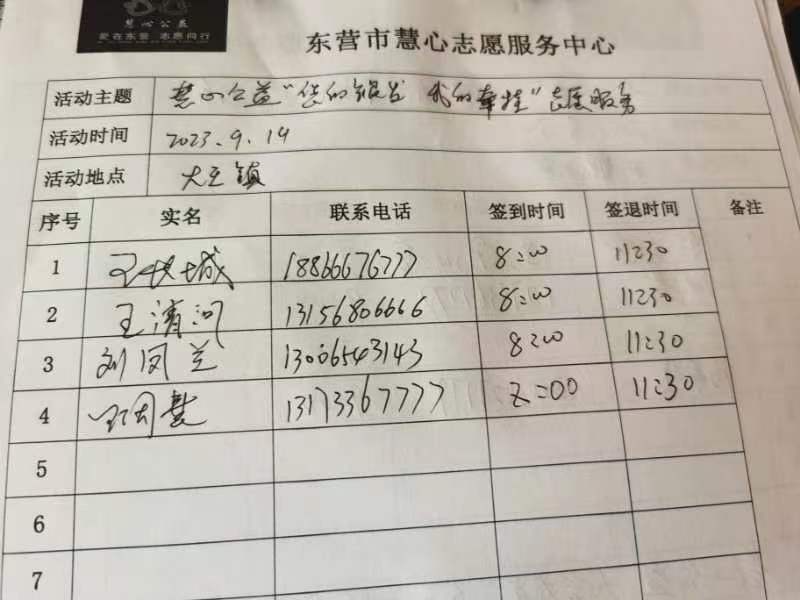 慧心公益
爱在东营 志愿同行
东营市慧心志愿服务中心
活动主题 慧心公益“您的银发 我的牵挂”志愿服务
活动时间 2023.9.19
活动地点 大王镇
序号 实名 联系电话 签到时间 签退时间 备注
1 王长城 18866676777 8:00 11:30
2 王清河 13156806666 8:00 11:30
3 刘凤兰 13006543143 8:00 11:30
4 13173367777 8:00 11:30
5
6
7